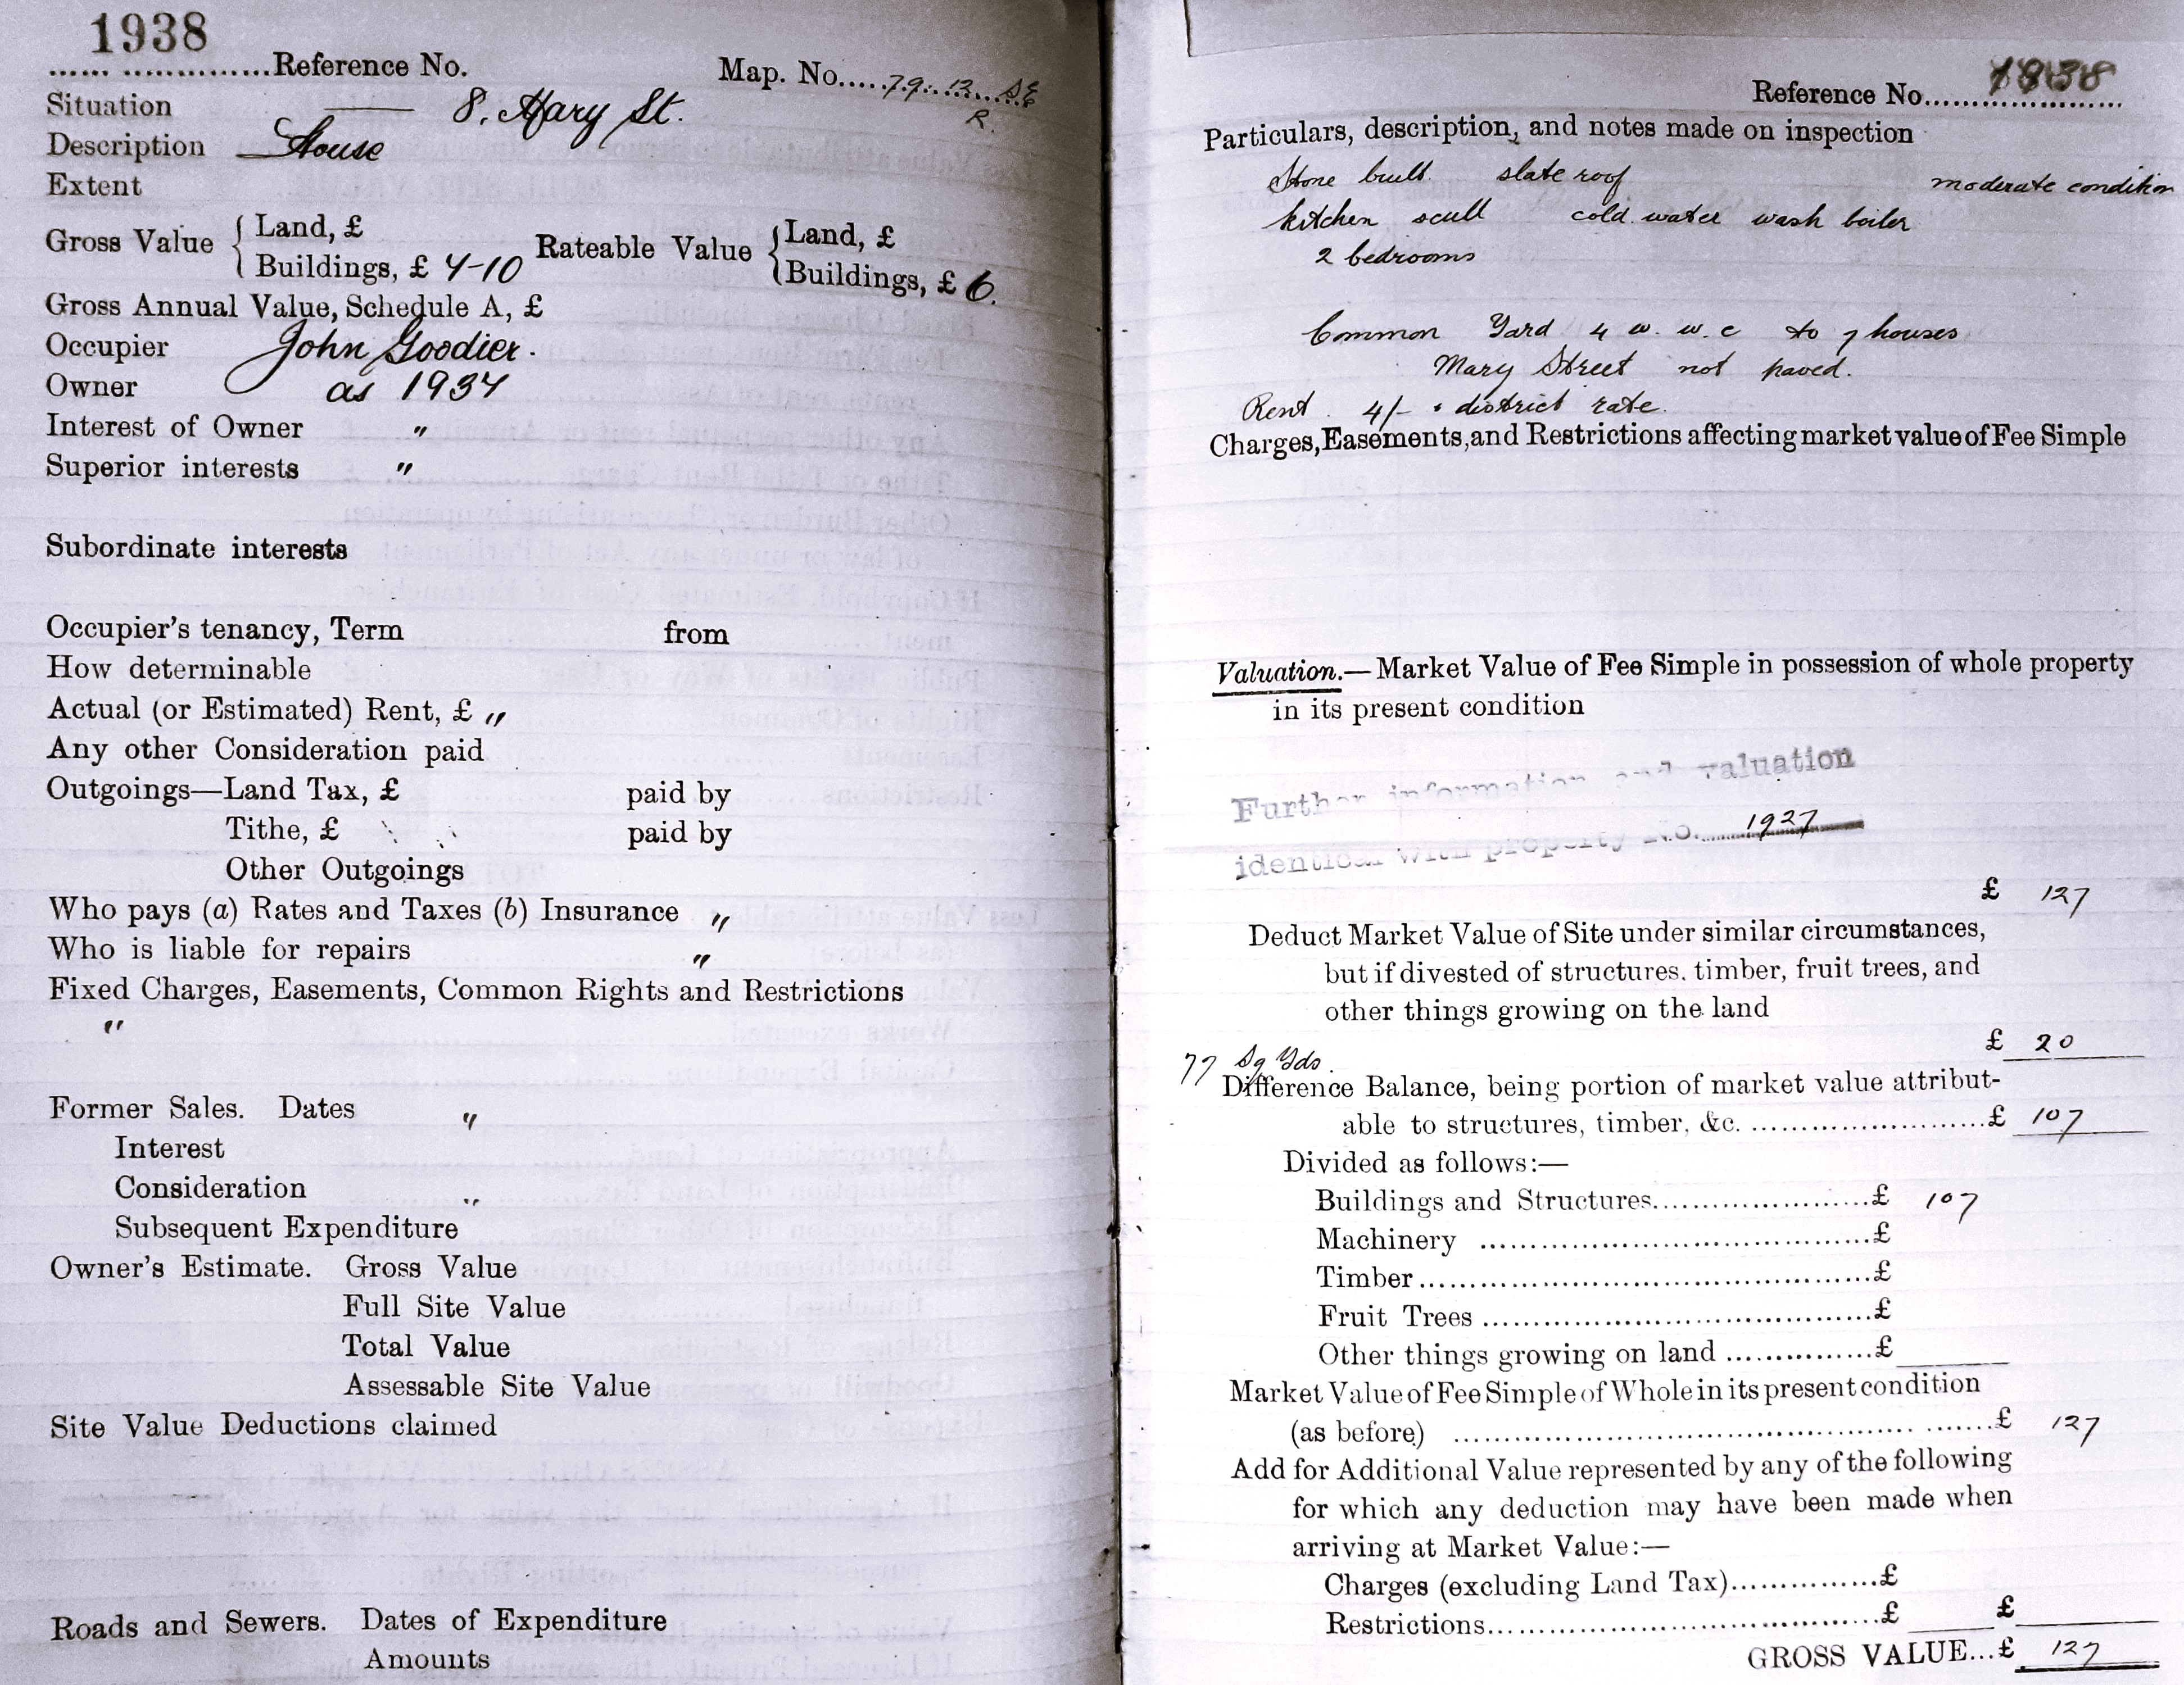 1938
...... ...............Reference No. Map. No.....79..12...SE
R.
Situation —— 8, Mary St.
Description House
Extent
Gross Value { Land, £
Buildings, £ 4-10 Rateable Value { Land, £
Buildings, £ 6.
Gross Annual Value, Schedule A, £
Occupier John Goodier.
Owner as 1934
Interest of Owner "
Superior interests "
Subordinate interests
Occupier's tenancy, Term from
How determinable
Actual (or Estimated) Rent, £ "
Any other Consideration paid
Outgoings—Land Tax, £ paid by
Tithe, £ paid by
Other Outgoings
Who pays (a) Rates and Taxes (b) Insurance "
Who is liable for repairs "
Fixed Charges, Easements, Common Rights and Restrictions
"
Former Sales. Dates "
Interest
Consideration "
Subsequent Expenditure
Owner's Estimate. Gross Value
Full Site Value
Total Value
Assessable Site Value
Site Value Deductions claimed
Roads and Sewers. Dates of Expenditure
Amounts
Reference No. 1938
Particulars, description, and notes made on inspection
Stone built slate roof moderate condition
kitchen scull cold water wash boiler
2 bedrooms
Common Yard 4 w. w. c to 7 houses
Mary Street not paved.
Rent. 4/- + district rate.
Charges, Easements, and Restrictions affecting market value of Fee Simple
Valuation.—Market Value of Fee Simple in possession of whole property
in its present condition
Further information and valuation
identical with property No. 1927
£ 127
Deduct Market Value of Site under similar circumstances,
but if divested of structures. timber, fruit trees, and
other things growing on the land
£ 20
77 Sq Yds.
Difference Balance, being portion of market value attribut-
able to structures, timber, &c. ........................£ 107
Divided as follows:—
Buildings and Structures......................£ 107
Machinery .......................................£
Timber.............................................£
Fruit Trees ......................................£
Other things growing on land ...............£
Market Value of Fee Simple of Whole in its present condition
(as before) ..............................................£ 127
Add for Additional Value represented by any of the following
for which any deduction may have been made when
arriving at Market Value:—
Charges (excluding Land Tax)...............£
Restrictions.......................................£ £
GROSS VALUE...£ 127